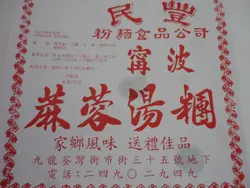 民豐
粉麵食品公司
寗波
蔴蓉湯糰
家鄉風味 送禮佳品
九龍荃灣街市街三十五號地下
電話：二四九〇二九四九